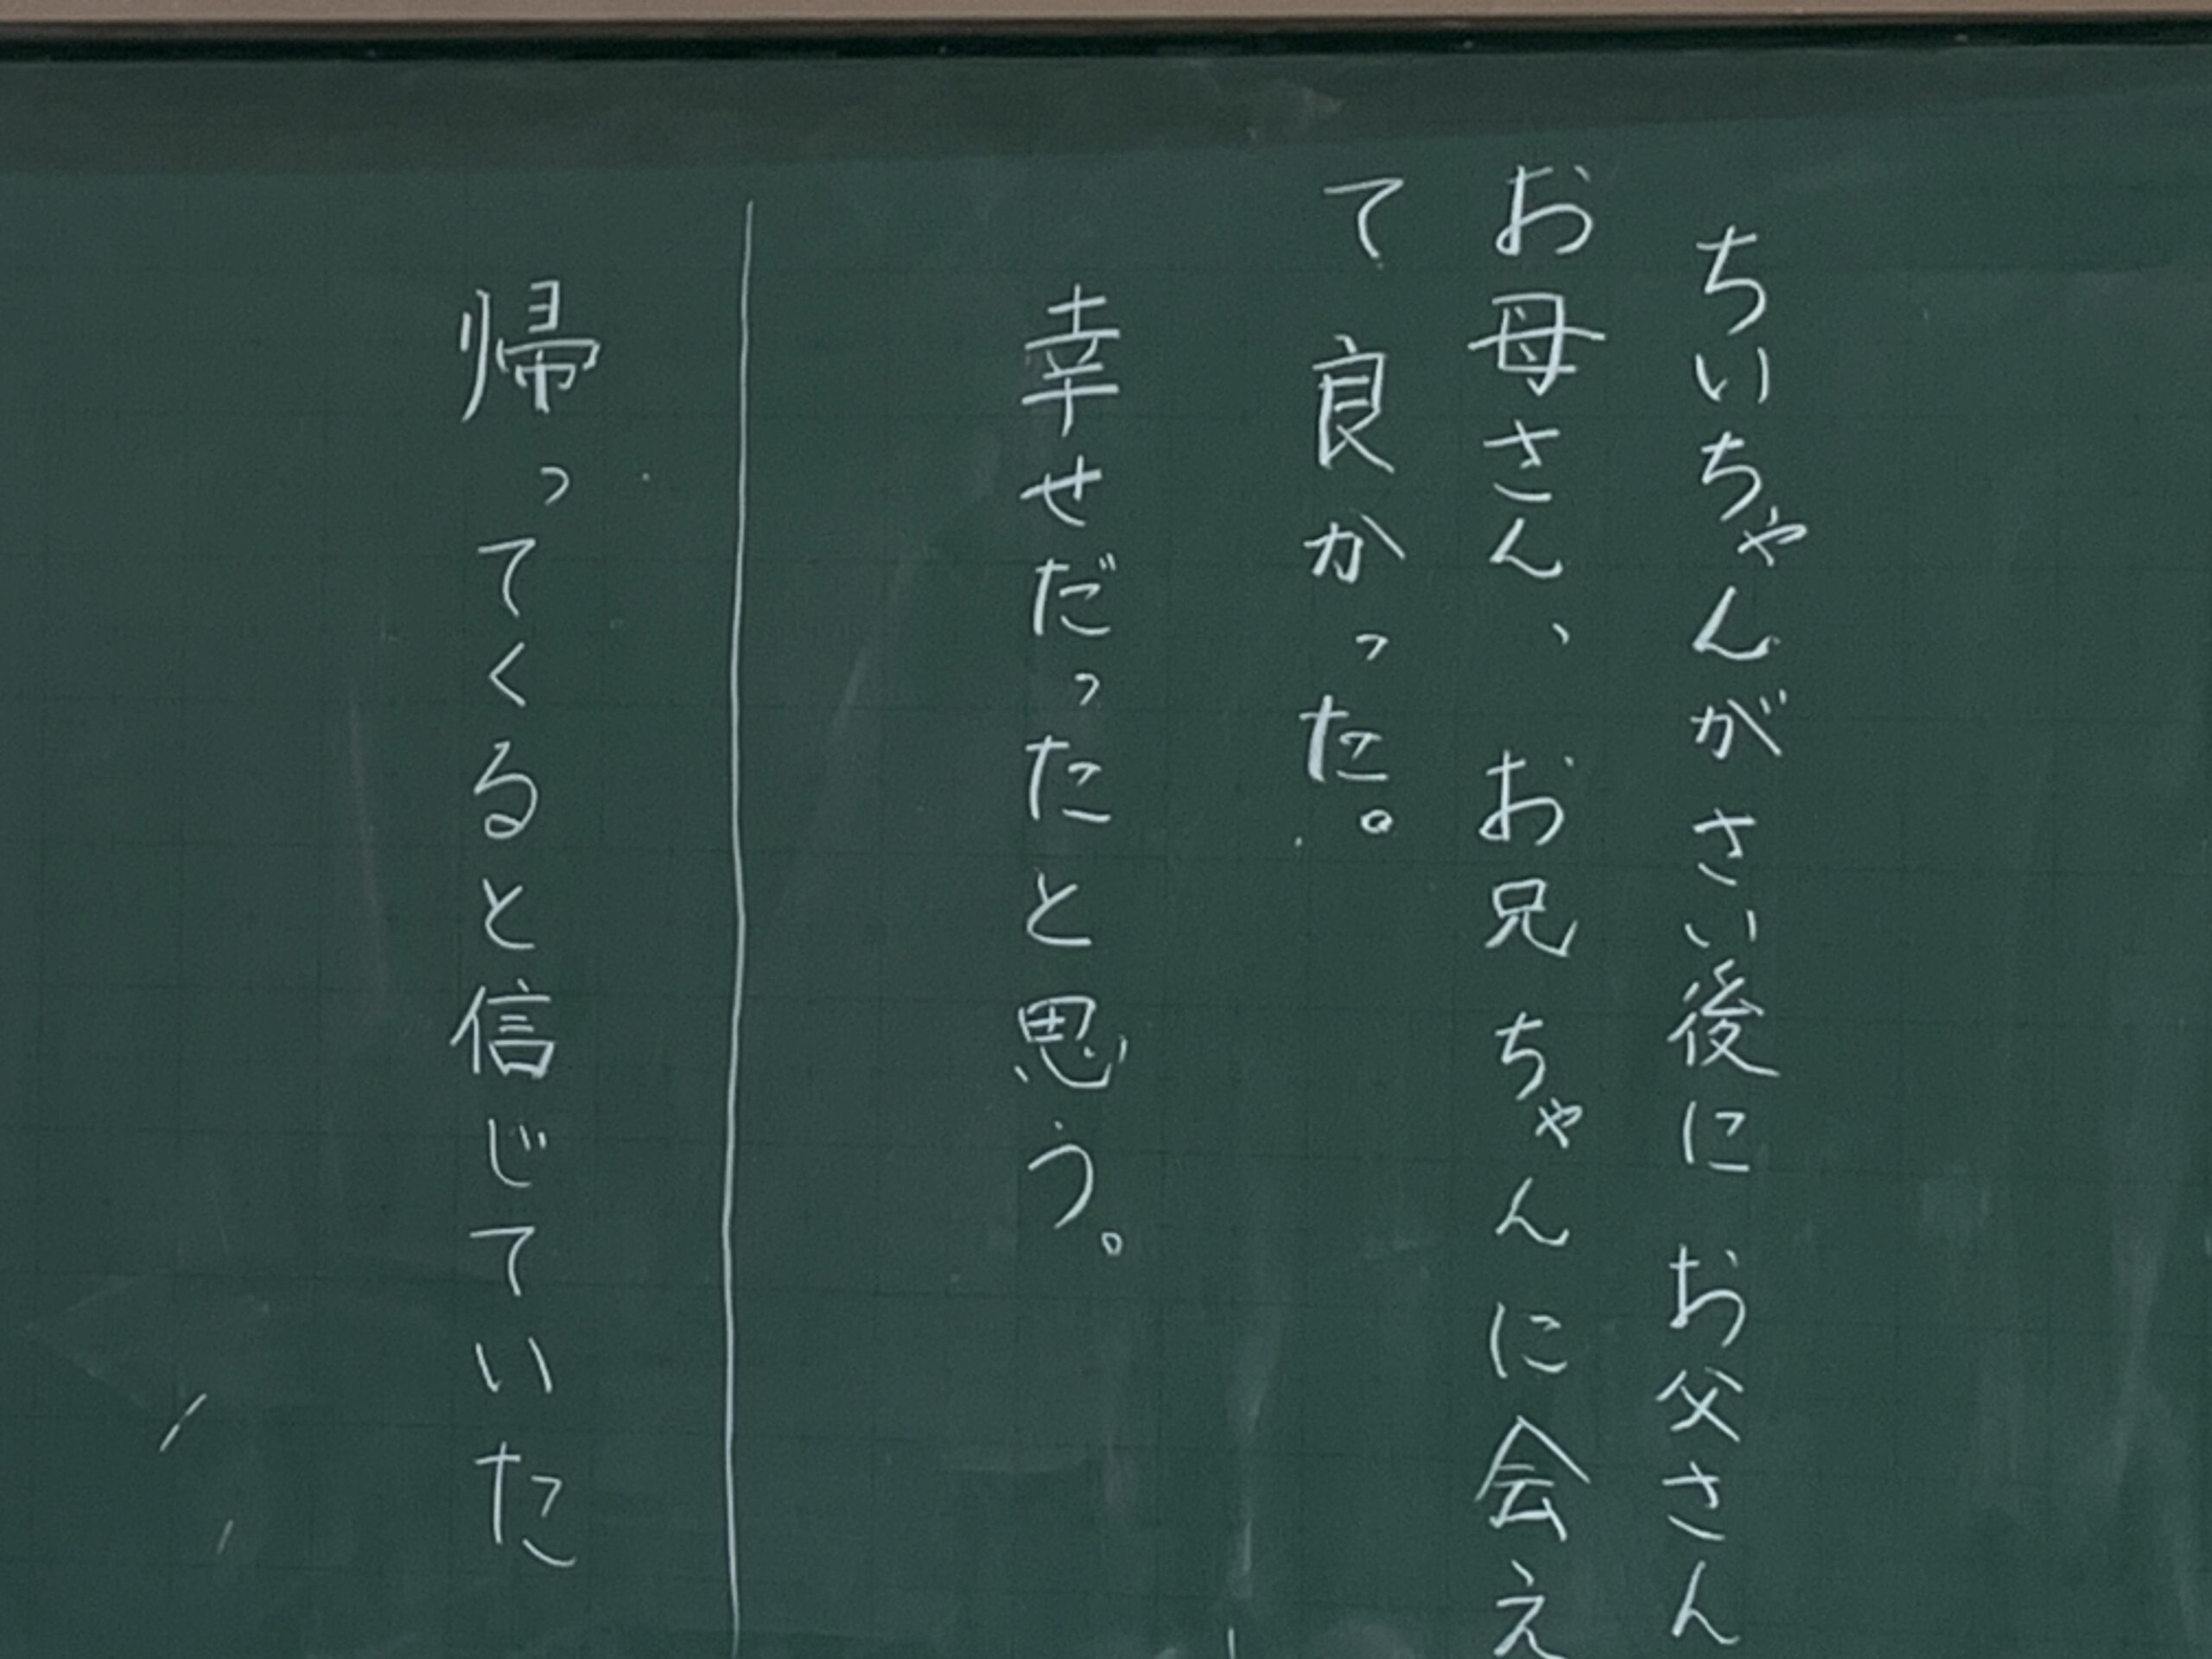 ちいちゃんがさい後にお父さん
お母さん、お兄ちゃんに会え
て良かった。
幸せだったと思う。
帰ってくると信じていた